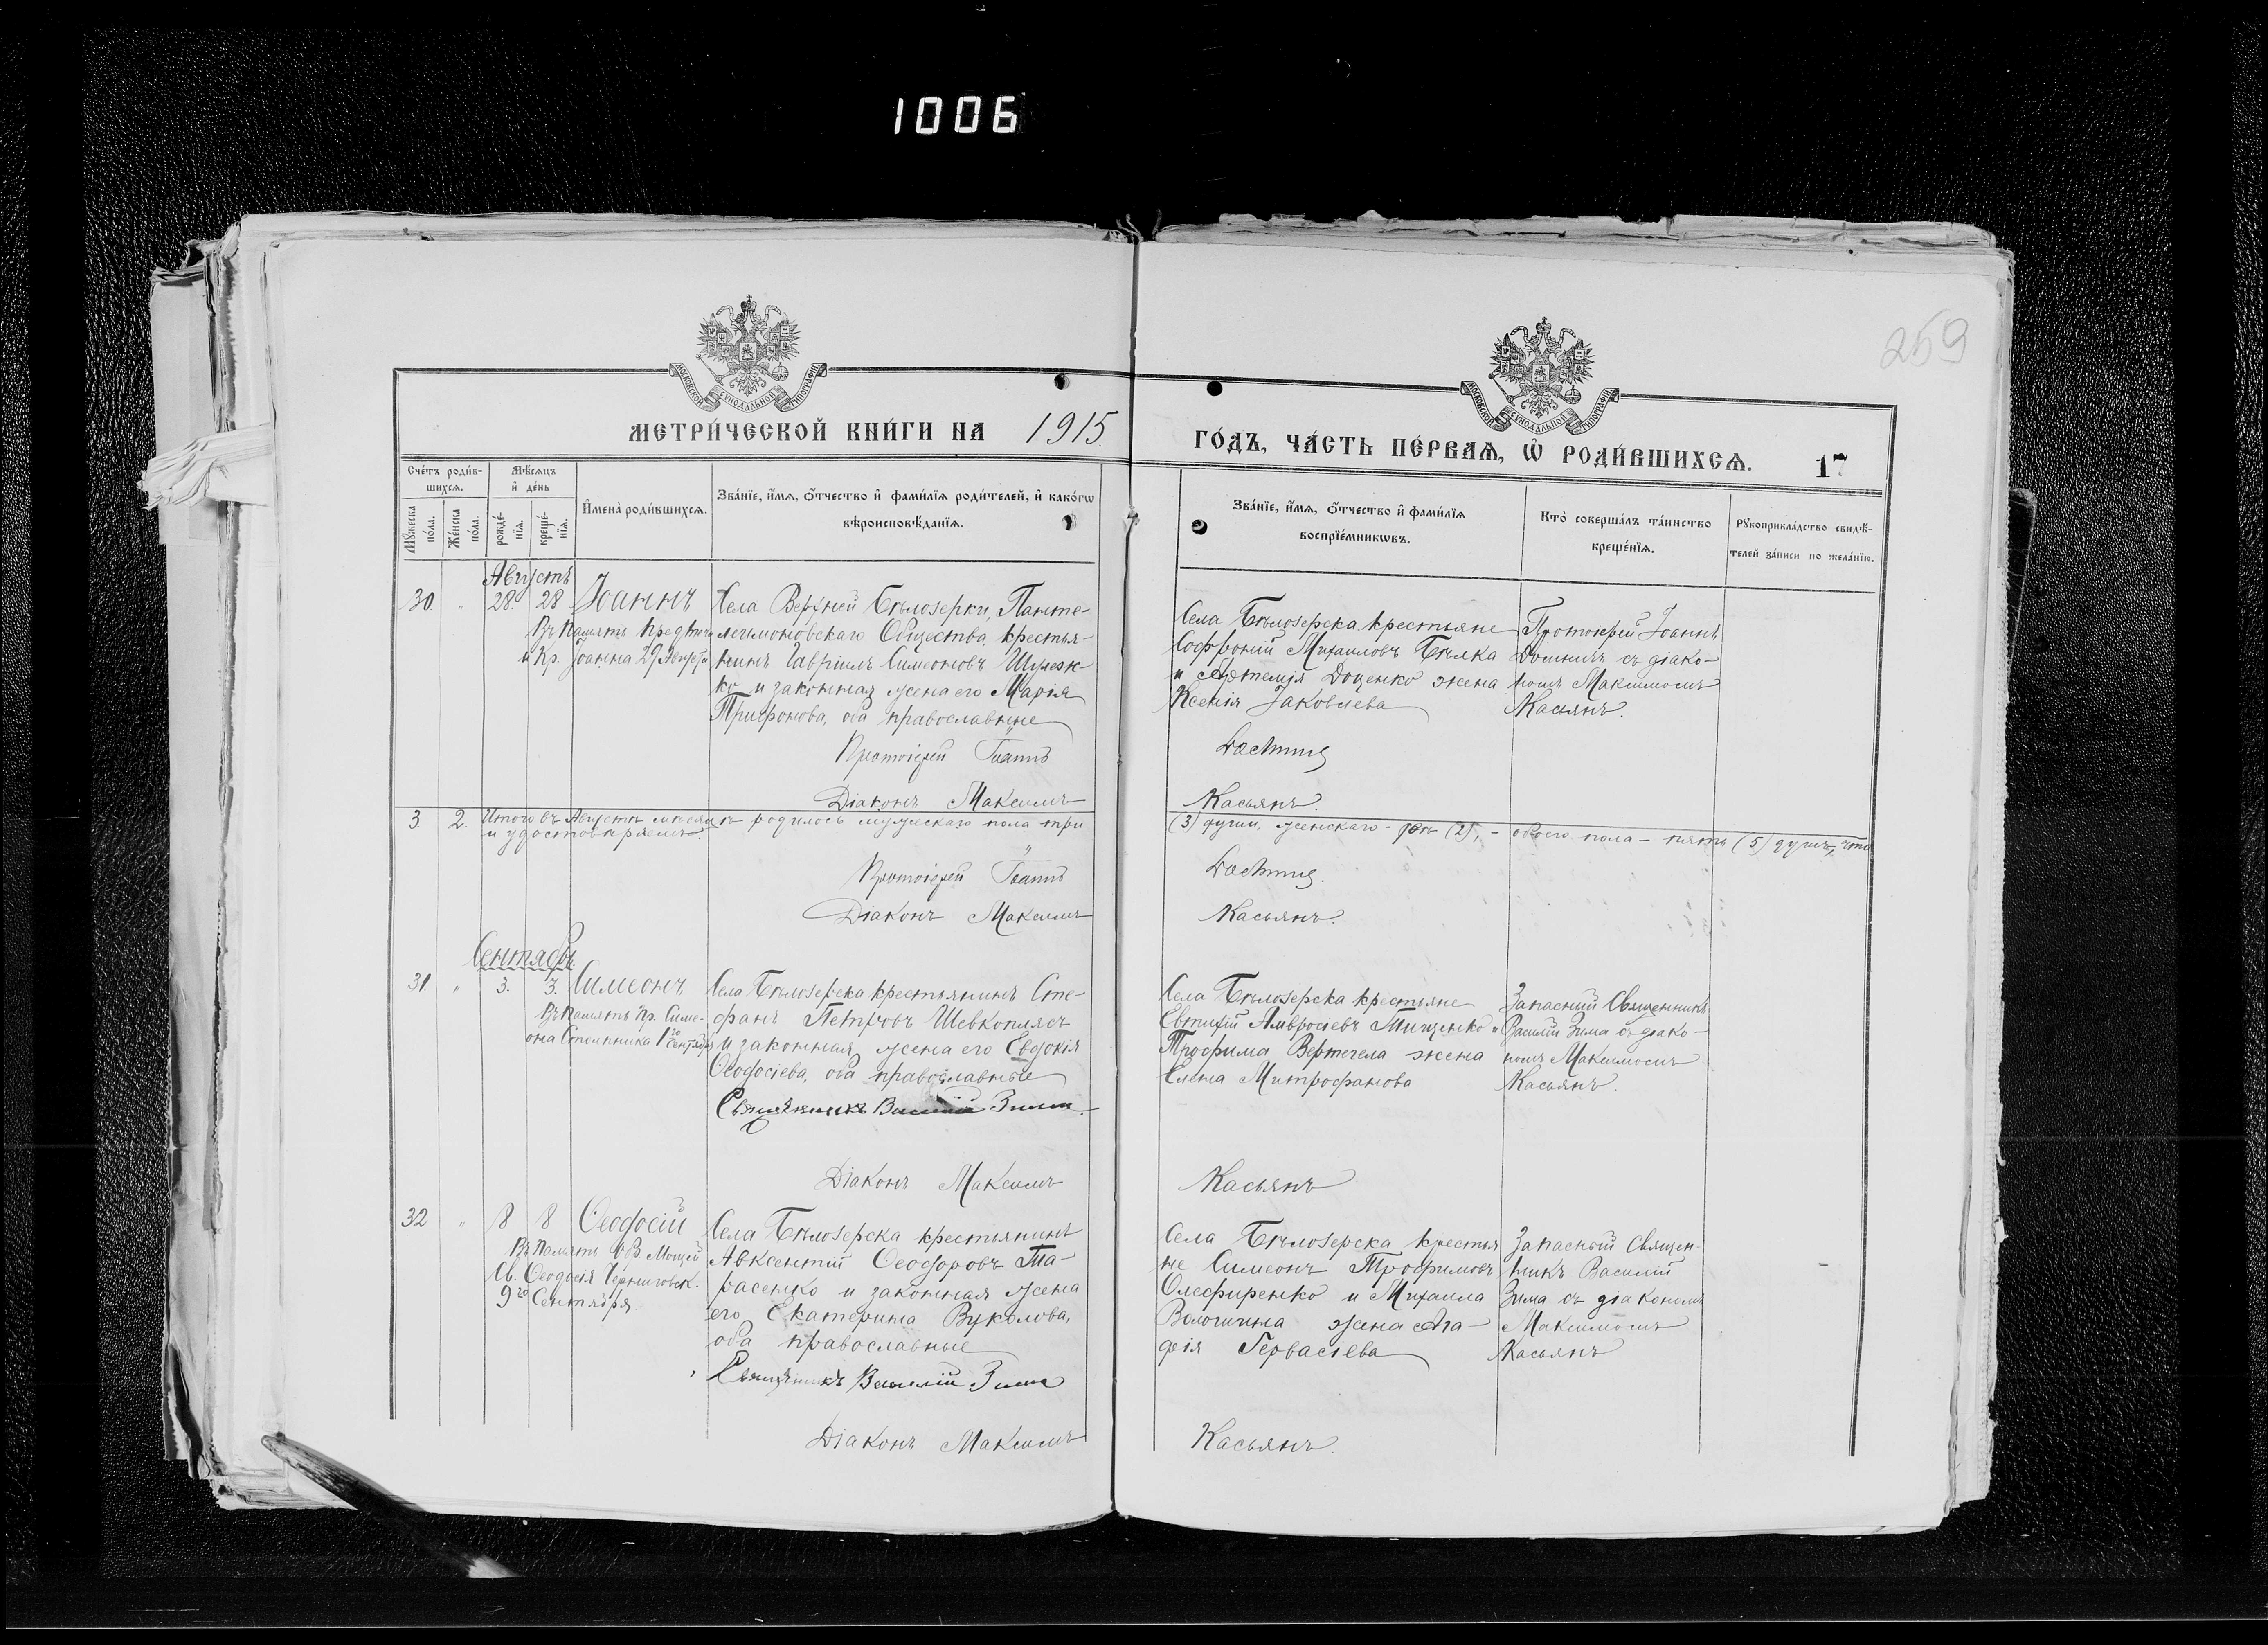 1006
259
МОСКОВСКОЙ СѴНОДАЛЬНОЙ ТИПОГРАФІИ
МОСКОВСКОЙ СѴНОДАЛЬНОЙ ТИПОГРАФІИ
МЕТРИ́ЧЕСКОЙ КНИ́ГИ НА 1915
ГО́ДЪ, ЧА́СТЬ ПЕ́РВАѦ, Ѡ РОДИ́ВШИХСѦ. 17
Сче́тъ роди́в-
шихсѧ.
Мꙋ́жеска
по́ла.
Же́нска
по́ла.
Мѣ́сѧцъ
и҆ де́нь
рожде́-
нїѧ.
креще́-
нїѧ.
И҆мена̀ роди́вшихсѧ.
Зва́нїе, и҆́мѧ, ѻ҆́тчество и҆ фами́лїѧ роди́телей, и҆ како́гѡ
вѣроисповѣ́данїѧ.
Зва́нїе, и҆́мѧ, ѻ҆́тчество и҆ фами́лїѧ
воспрїе́мникѡвъ.
Кто̀ соверша́лъ та́инство
креще́нїѧ.
Рꙋкоприкла́дство свидѣ́-
телей за́писи по жела́нїю.
Августъ
30. " 28. 28 Іоаннъ
Въ память Предтечи
и Кр. Іоанна 29 Августа
Села Верхней Бѣлозерки, Панте-
леимоновскаго Общества, крестья-
нинъ Гавріилъ Симеоновъ
ко и законная жена его Марія
Трифонова, оба православные
Протоіерей Іоаннъ
Діаконъ Максимъ
Села Бѣлозерска крестьяне
Софроній Михаиловъ Бѣлка
и Артемія Доценко жена
Ксенія Іаковлева
Касьянъ.
Протоіерей Іоаннъ
съ діако-
номъ Максимомъ
Касьянъ.
3. 2. Итого въ Августѣ мѣсяцѣ родилось мужескаго пола три
и удостовѣряемъ.
(3) души, женскаго - двѣ (2), - обоего пола - пять (5) душъ, что
Протоіерей Іоаннъ
Діаконъ Максимъ
Касьянъ.
Сентябрь
31. " 3. 3. Симеонъ
Въ память Пр. Симе-
она Столпника 1го Сентября
Села Бѣлозерска крестьянинъ Сте-
фанъ Петровъ Шевкоплясъ
и законная жена его Евдокія
Ѳеодосіева, оба православные
Священникъ Василій Зима.
Діаконъ Максимъ
Села Бѣлозерска крестьяне
Евтихій Амвросіевъ Тищенко и
Трофима Вертегела жена
Елена Митрофанова
Касьянъ
Запасный Священникъ
Василій Зима съ діако-
номъ Максимомъ
Касьянъ.
32 " 8 8 Ѳеодосій
Въ память Обр. Мощей
Св. Ѳеодосія Черниговск.
9го Сентября
Села Бѣлозерска крестьянинъ
Авксентій Ѳеодоровъ Та-
расенко и законная жена
его Екатерина Вуколова,
оба православные
Священникъ Василій Зима
Діаконъ Максимъ
Села Бѣлозерска крестья
не Симеонъ Трофимовъ
Олефиренко и Михаила
Вологина жена Ага-
фія Гервасіева
Касьянъ.
Запасный Священ-
никъ Василій
Зима съ діакономъ
Максимомъ
Касьянъ